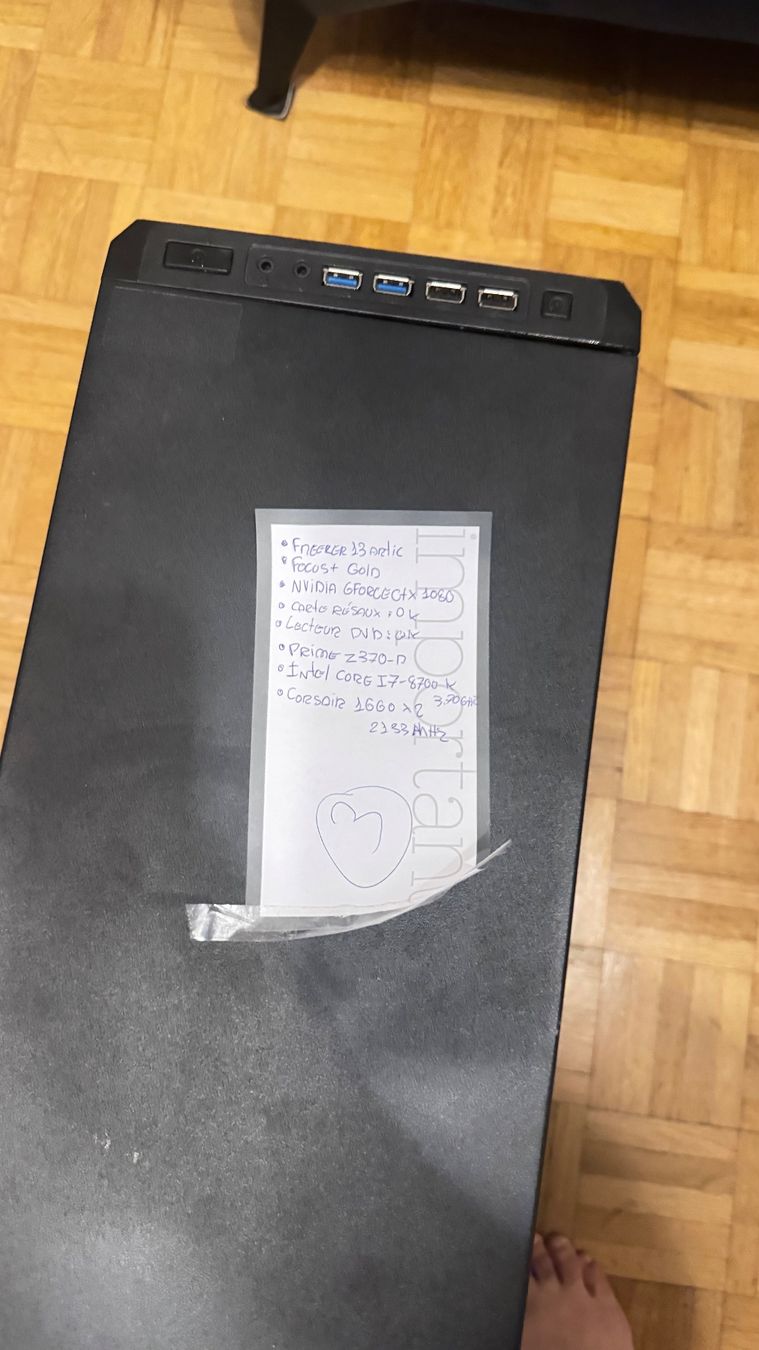 • FREEZER 13 Artic
• FOCUS+ GOLD
• NVIDIA GFORCE GTX 1080
• CARTE RÉSAUX : OK
• Lecteur DVD : OK
• PRIME Z370-P
• Intel CORE I7-8700 K
3.70 GHz
• CORSAIR 16GO x2
2133 MHz
3
important